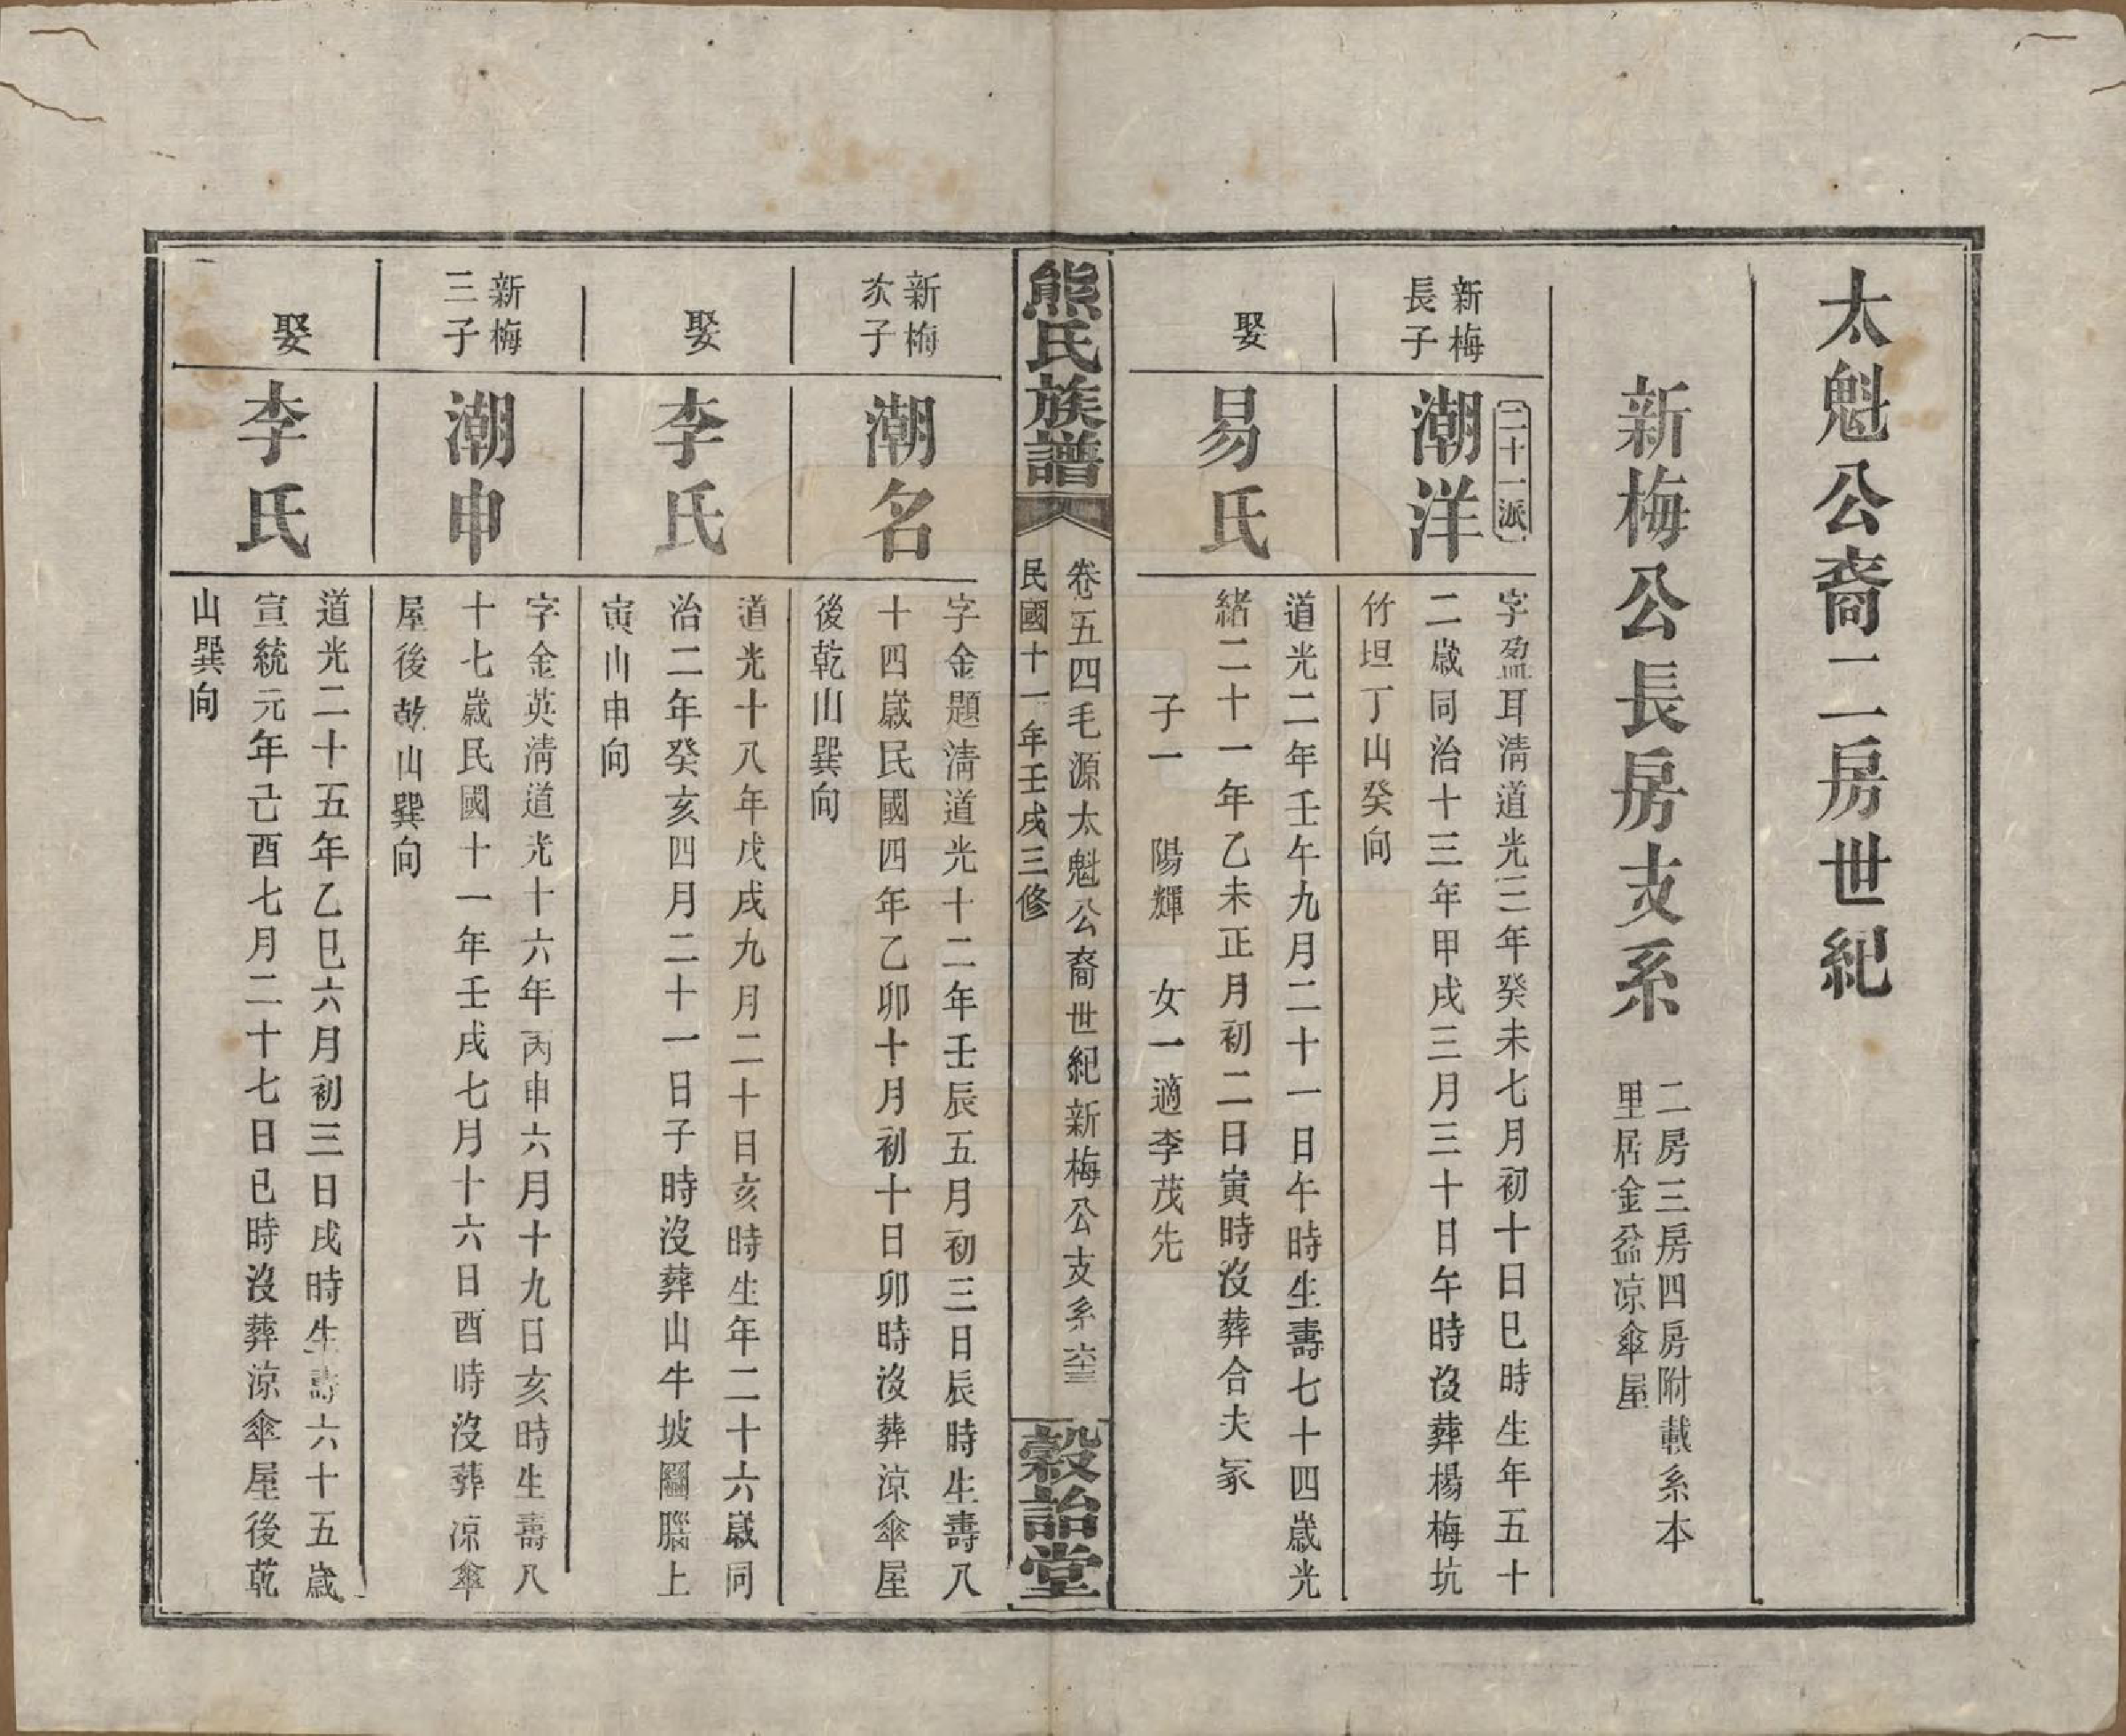 太魁公裔二房世紀
新梅公長房支系
二房三房四房附載系本
里居金盆凉傘屋
新梅
長子
二十一派
潮洋
字盈耳淸道光三年癸未七月初十日巳時生年五十
二歲同治十三年甲戌三月三十日午時沒葬楊梅坑
竹坦丁山癸向
娶
易氏
道光二年壬午九月二十一日午時生壽七十四歲光
緒二十一年乙未正月初二日寅時沒葬合夫冢
子一 陽輝 女一適李茂先
熊氏族譜
卷五四毛源太魁公裔世紀新梅公支系
民國十一年壬戌三修
穀詒堂
新梅
次子
潮名
字金題淸道光十二年壬辰五月初三日辰時生壽八
十四歲民國四年乙卯十月初十日卯時沒葬凉傘屋
後乾山巽向
娶
李氏
道光十八年戊戌九月二十日亥時生年二十六歲同
治二年癸亥四月二十一日子時沒葬山牛坡圞腦上
寅山申向
新梅
三子
潮申
字金英淸道光十六年丙申六月十九日亥時生壽八
十七歲民國十一年壬戌七月十六日酉時沒葬凉傘
屋後乾山巽向
娶
李氏
道光二十五年乙巳六月初三日戌時生壽六十五歲
宣統元年己酉七月二十七日巳時沒葬凉傘屋後乾
山巽向